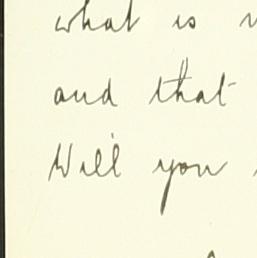 what is
and that
Will you